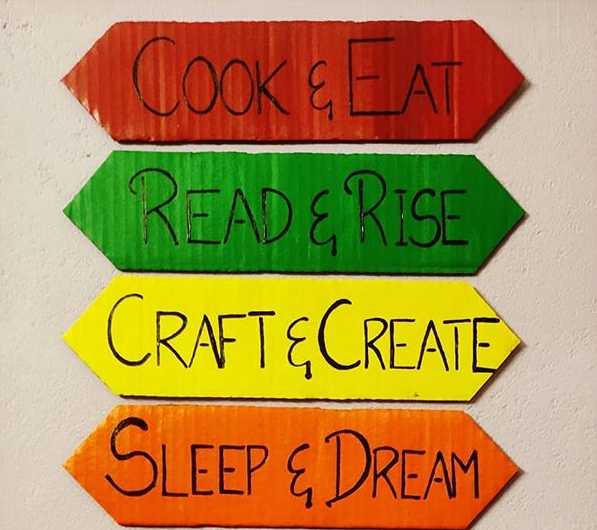 COOK & EAT
READ & RISE
CRAFT & CREATE
SLEEP & DREAM